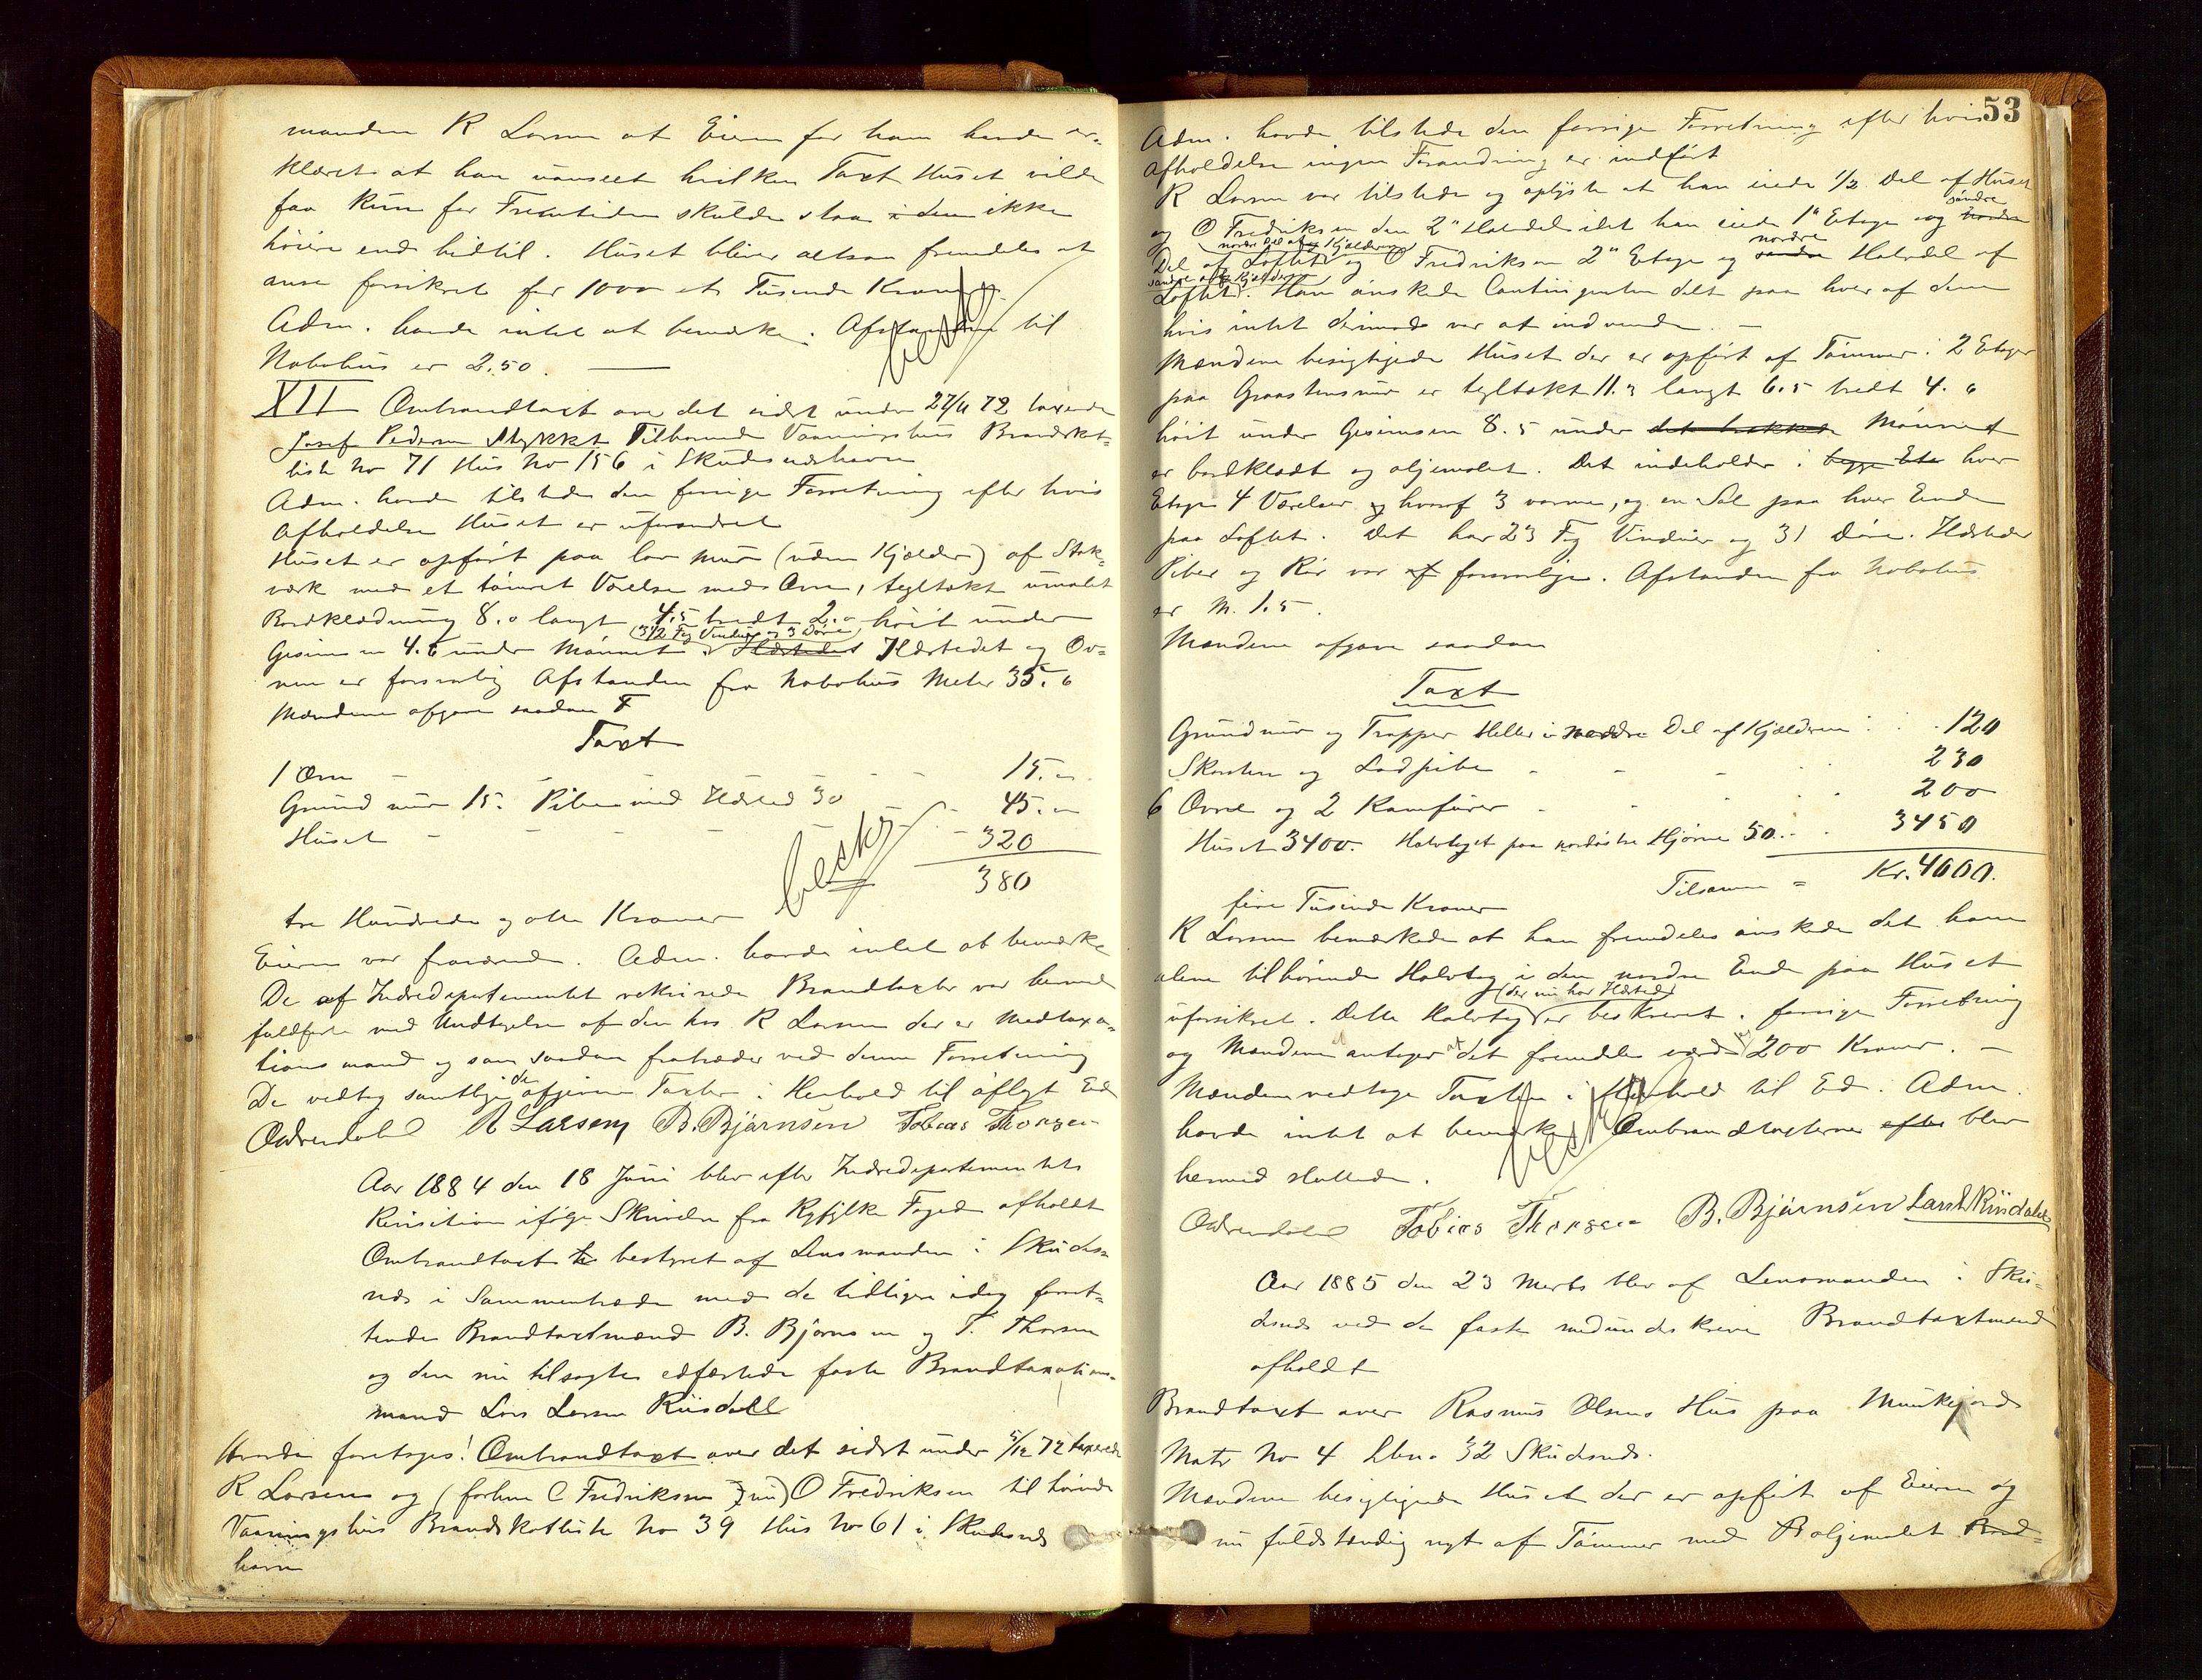 manden R Larsen at Eieren for ham havde er-
klæret at han uanseet hvilken Taxt Huset vilde
faa kun for Fremtiden skulde staa i den ikke
höiere end hidtil. Huset bliver altsaa fremdeles at
anse forsikret for 1000 et Tusende Kroner.
Adm. havde intet at bemærke. Afstanden til
Nabohus er 2.50.
XII Ombrandtaxt over det sidst under 27/11 72 taxerede
Josef Pedersen Stykket Tilhörende Vaaningshus Brandskat-
liste No 71 Hus No 156 i Skudesneshavn
Adm. havde tilstede den forrige Forretning efter hvis
Afholdelse Huset er uforandret
Huset er opfört paa lav mur (uden Kjælder) af Stok-
værk med et tömret Værelse med Ovn, tegltækt umalet
Bordklædning 8.0 langt 4.5 bredt 2.0 höit under
(3 1/2 Fag Vinduer og 3 Döre)
Gesimsen 4.5 under Mönnet Ildstedet Ildstedet og Ov-
nen er forsvarlig Afstanden fra Nabohus Meter 35.0
Mændene afgave saadan
Taxt
1 Ovn - - - 15.-
Grundmur 15. Piben med Ildsted 30 - - 45.-
Huset - - - - - 320
380
becktg
tre Hundrede og otti Kroner
Eieren var fraværende. Adm. havde intet at bemærke
De af Indredepartementet rekvirerede Brandtaxter var hermed
fuldförte med Undtagelse af den hos R Larsen der er Medtaxa-
tionsmand og som saadan fratræder ved denne Forretning
De vedtog samtlige de afgivne Taxter i Henhold til aflagt Ed
R Larsen B. Bjørnsen Tobias Thorsen
Aar 1884 den 18 Juni blev efter Indredepartementets
Revisition ifölge Skrivelse fra Ryfylke Foged afholdt
Ombrandtaxt bestyret af Lensmanden i Skudes-
nes i Sammentræde med de tidligere idag forret-
tende Brandtaxtmænd B. Bjørnsen og T. Thorsen
og den nu tilsagte edfæstede faste Brandtaxations-
mand Lars Larsen Risdall
Hvorda foretoges! Ombrandtaxt over det sidst under 5/12 72 taxerede
R Larsens og (forhen C Fredriksen nu) O Fredriksen tilhörende
Vaaningshus Brandskatliste No 39 Hus No 61 i Skudesnes
havn
53
Adm. havde tilstede den forrige Forretning efter hvis
Afholdelse ingen Forandring er indfört
R Larsen var tilstede og oplyste at han eiede 1/2 Del af Huset
og O Fredriksen den 2" Halvdel idet han eiede 1" Etage og söndre nordre
(nordre Del af Kjælderen)
Del af Loftet og O Fredriksen 2" Etage og nordre søndre Halvdel af
söndre af Kjælderen
Loftet. Han önskede Contingenten delt paa hver af dem
hvis intet derimod var at indvende. -
Mændene besigtigede Huset der er opfört af Tömmer i 2 Etager
paa Graastensmur er tegltækt 11.3 langt 6.5 bredt 4.6
höit under Gesimsen 8.5 under Mönnet
er bordklædt og oljemalet. Det indeholder i begge Eta hver
Etage 4 Værelser og hvoraf 3 varme, og en Sal paa hver Ende
paa Loftet. Det har 23 Fag Vinduer og 31 Döre. Ildsteder
Piber og Rör var forsvarlige. Afstanden fra Nabohus
er M. 1.5.
Mændene afgave saadan
Taxt
Grundmur og Trapper Heller i nordre Del af Kjælderen . . 120
Skorsten og Ladpibe - - - 230
6 Ovne og 2 Kamfurer - - 200
Huset 3400. Halvtaget paa nordöstre Hjörne 50. . 3450
Tilsammen = Kr. 4000.
fire Tusinde Kroner
R Larsen bemærkede at han fremdeles önskede det ham
alene tilhörende Halvtag i den nordre Ende paa Huset
(der nu har Ildsted)
uforsikret. Dette Halvtag er beskrevet i forrige Forretning
og Mændene antager at det fremdeles værd 200 Kroner. -
Mændene vedtoge Taxten i Henhold til Ed. Adm.
havde intet at bemærke. Ombrandtaxterne efter blev
hermed sluttede.
Tobias Thorsen B. Bjørnsen Lars L Risdahl
Aar 1885 den 23 Marts blev af Lensmanden i Sku-
desnes ved de faste medunderskrevne Brandtaxtmænd
afholdt
Brandtaxt over Rasmus Olsens Hus paa
Matr No 4 Lbn. 32 Skudesnes.
Mændene besigtigede Huset der er opfört af Eieren og
nu fuldstændig nyt af Tömmer med oljemalet Bord-